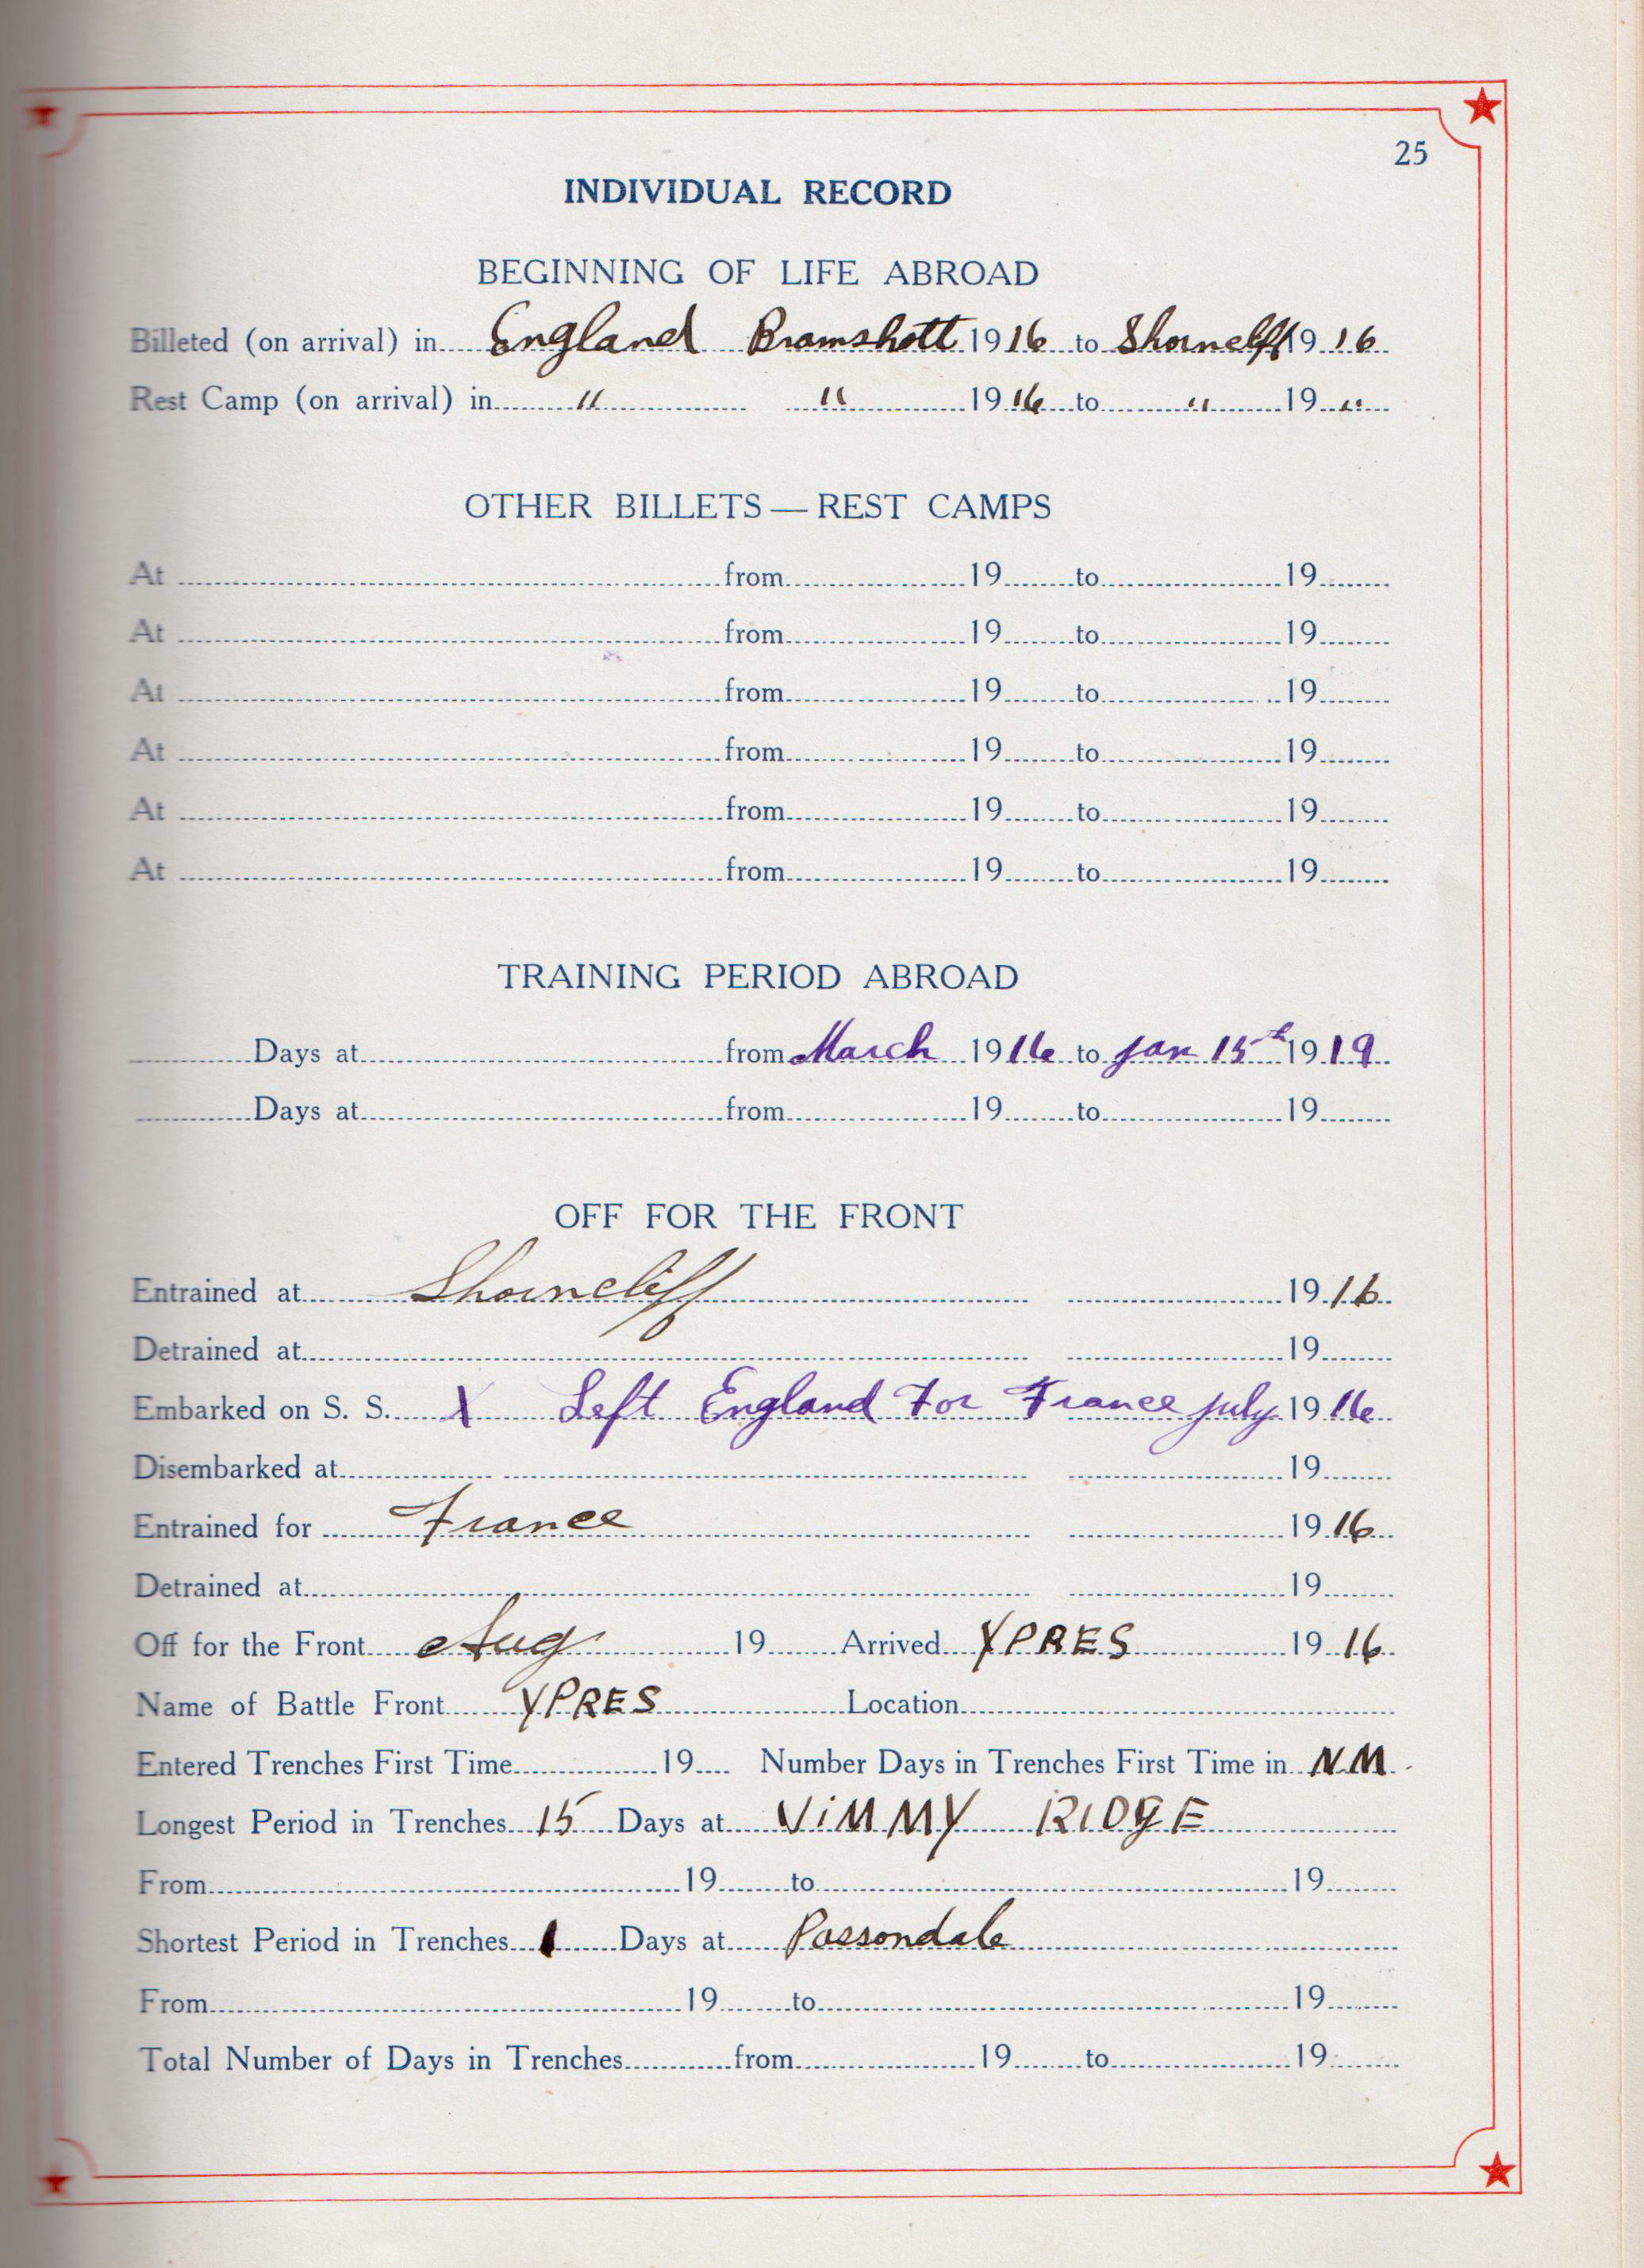 25
INDIVIDUAL RECORD
BEGINNING OF LIFE ABROAD
Billeted (on arrival) in England Bramshott 1916 to Shornclff 1916
Rest Camp (on arrival) in " " 1916 to " 19 "
OTHER BILLETS — REST CAMPS
At from 19 to 19
At from 19 to 19
At from 19 to 19
At from 19 to 19
At from 19 to 19
At from 19 to 19
TRAINING PERIOD ABROAD
Days at from March 1916 to Jan 15th 1919
Days at from 19 to 19
OFF FOR THE FRONT
Entrained at Shorncliff 1916
Detrained at 19
Embarked on S. S. X Left England For France July 1916
Disembarked at 19
Entrained for France 1916
Detrained at 19
Off for the Front Aug 19 Arrived YPRES 1916
Name of Battle Front YPRES Location
Entered Trenches First Time 19 Number Days in Trenches First Time in N.M.
Longest Period in Trenches 15 Days at ViMMY RIDGE
From 19 to 19
Shortest Period in Trenches 1 Days at Passondale
From 19 to 19
Total Number of Days in Trenches from 19 to 19